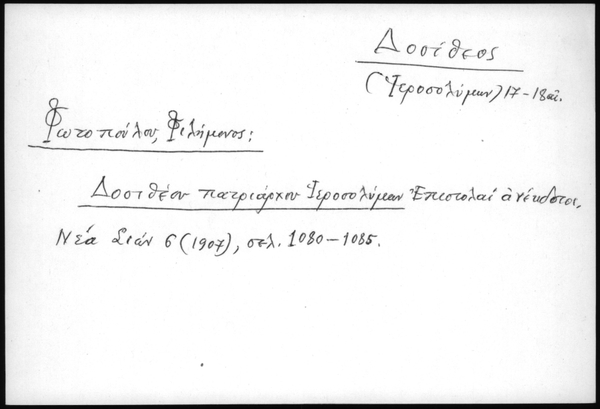 Δοσίθεος
(Ἱεροσολύμων) 17-18 αἰ.
Φωτοπούλου, Φιλήμονος:
Δοσιθέου πατριάρχου Ἱεροσολύμων Ἐπιστολαί ἀνέκδοτοι,
Νέα Σιών 6 (1907), σελ. 1080-1085.